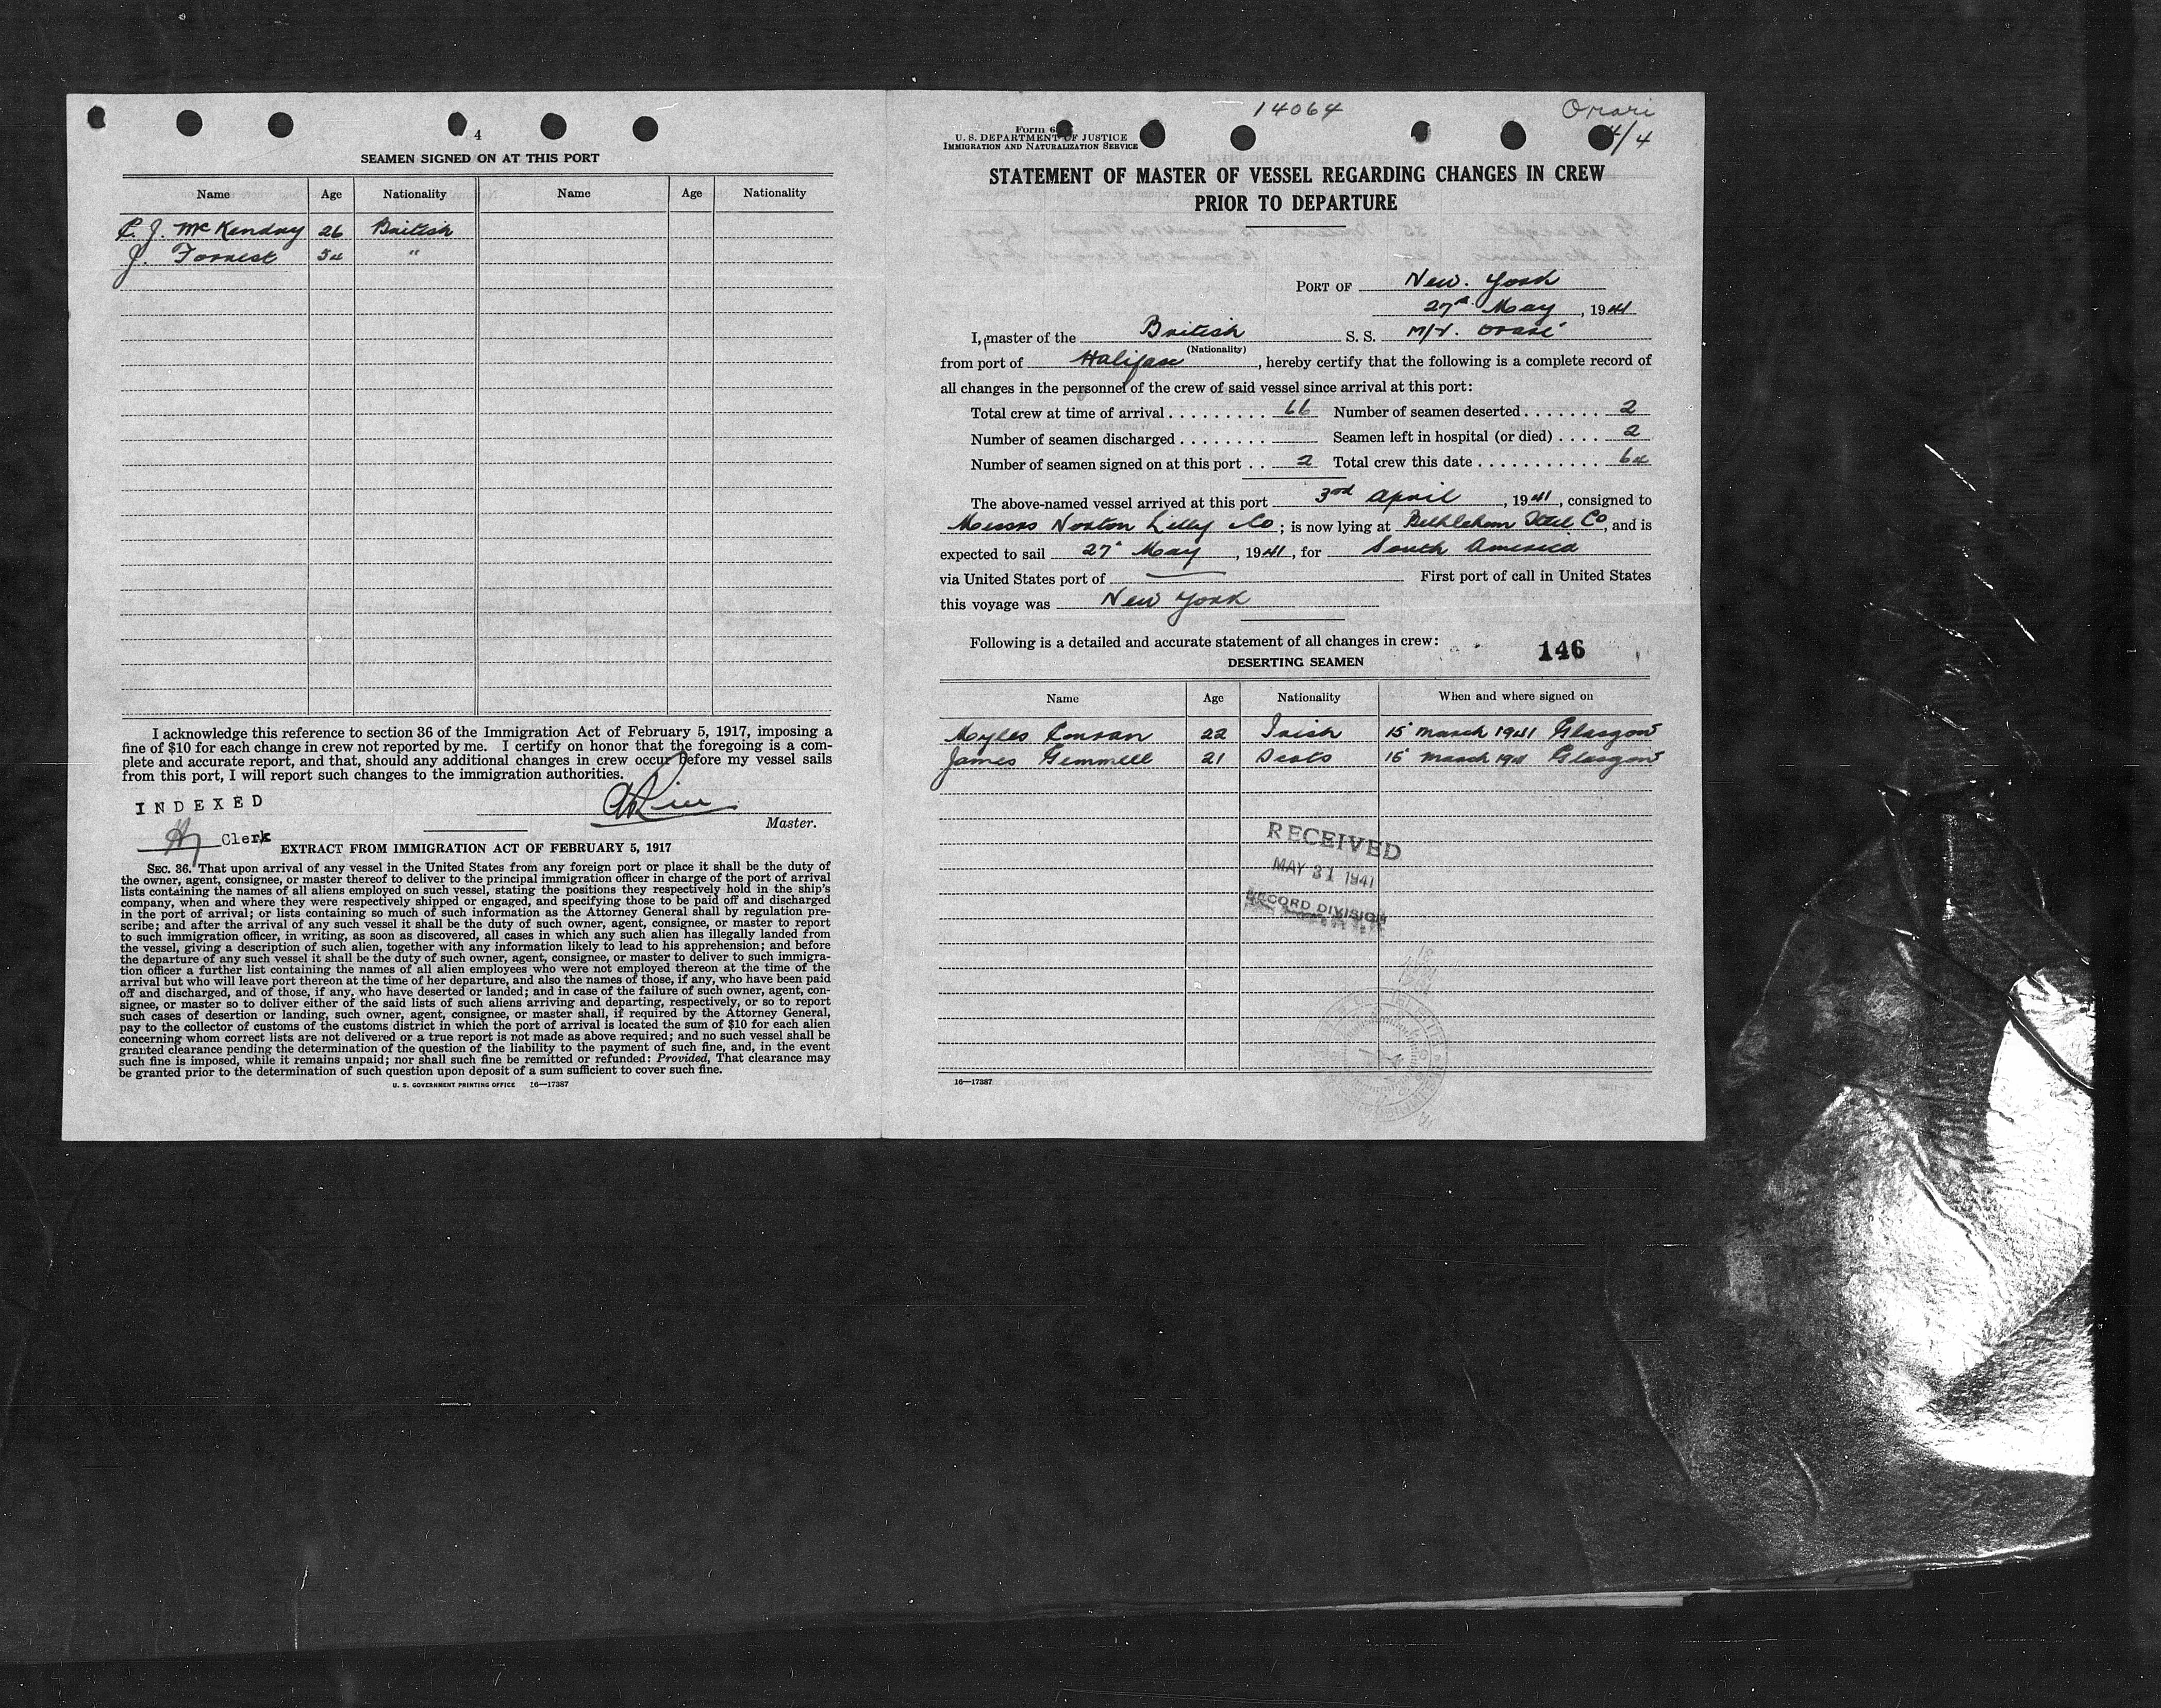 4
SEAMEN SIGNED ON AT THIS PORT
Name Age Nationality Name Age Nationality
C. J. McKendry 26 British
J. Forrest 54 "
I acknowledge this reference to section 36 of the Immigration Act of February 5, 1917, imposing a
fine of $10 for each change in crew not reported by me. I certify on honor that the foregoing is a com-
plete and accurate report, and that, should any additional changes in crew occur before my vessel sails
from this port, I will report such changes to the immigration authorities.
INDEXED
Master.
Clerk
EXTRACT FROM IMMIGRATION ACT OF FEBRUARY 5, 1917
SEC. 36. That upon arrival of any vessel in the United States from any foreign port or place it shall be the duty of
the owner, agent, consignee, or master thereof to deliver to the principal immigration officer in charge of the port of arrival
lists containing the names of all aliens employed on such vessel, stating the positions they respectively hold in the ship's
company, when and where they were respectively shipped or engaged, and specifying those to be paid off and discharged
in the port of arrival; or lists containing so much of such information as the Attorney General shall by regulation pre-
scribe; and after the arrival of any such vessel it shall be the duty of such owner, agent, consignee, or master to report
to such immigration officer, in writing, as soon as discovered, all cases in which any such alien has illegally landed from
the vessel, giving a description of such alien, together with any information likely to lead to his apprehension; and before
the departure of any such vessel it shall be the duty of such owner, agent, consignee, or master to deliver to such immigra-
tion officer a further list containing the names of all alien employees who were not employed thereon at the time of the
arrival but who will leave port thereon at the time of her departure, and also the names of those, if any, who have been paid
off and discharged, and of those, if any, who have deserted or landed; and in case of the failure of such owner, agent, con-
signee, or master so to deliver either of the said lists of such aliens arriving and departing, respectively, or so to report
such cases of desertion or landing, such owner, agent, consignee, or master shall, if required by the Attorney General,
pay to the collector of customs of the customs district in which the port of arrival is located the sum of $10 for each alien
concerning whom correct lists are not delivered or a true report is not made as above required; and no such vessel shall be
granted clearance pending the determination of the question of the liability to the payment of such fine, and, in the event
such fine is imposed, while it remains unpaid; nor shall such fine be remitted or refunded: Provided, That clearance may
be granted prior to the determination of such question upon deposit of a sum sufficient to cover such fine.
U. S. GOVERNMENT PRINTING OFFICE 16—17387
14064 Orari
4/4
Form 6
U. S. DEPARTMENT OF JUSTICE
IMMIGRATION AND NATURALIZATION SERVICE
STATEMENT OF MASTER OF VESSEL REGARDING CHANGES IN CREW
PRIOR TO DEPARTURE
PORT OF New York
27th May, 1941
I, master of the British S. S. M/V. Orari
(Nationality)
from port of Halifax, hereby certify that the following is a complete record of
all changes in the personnel of the crew of said vessel since arrival at this port:
Total crew at time of arrival 66 Number of seamen deserted 2
Number of seamen discharged Seamen left in hospital (or died) 2
Number of seamen signed on at this port 2 Total crew this date 64
The above-named vessel arrived at this port 3rd April, 1941, consigned to
Messrs Norton Lilly & Co; is now lying at Bethlehem Steel Co, and is
expected to sail 27 May, 1941, for South America
via United States port of — First port of call in United States
this voyage was New York
Following is a detailed and accurate statement of all changes in crew:
146
DESERTING SEAMEN
Name Age Nationality When and where signed on
Myles Conran 22 Irish 15 March 1941 Glasgow
James Gemmell 21 Scots 15 March 1941 Glasgow
RECEIVED
MAY 31 1941
RECORD DIVISION
16—17387